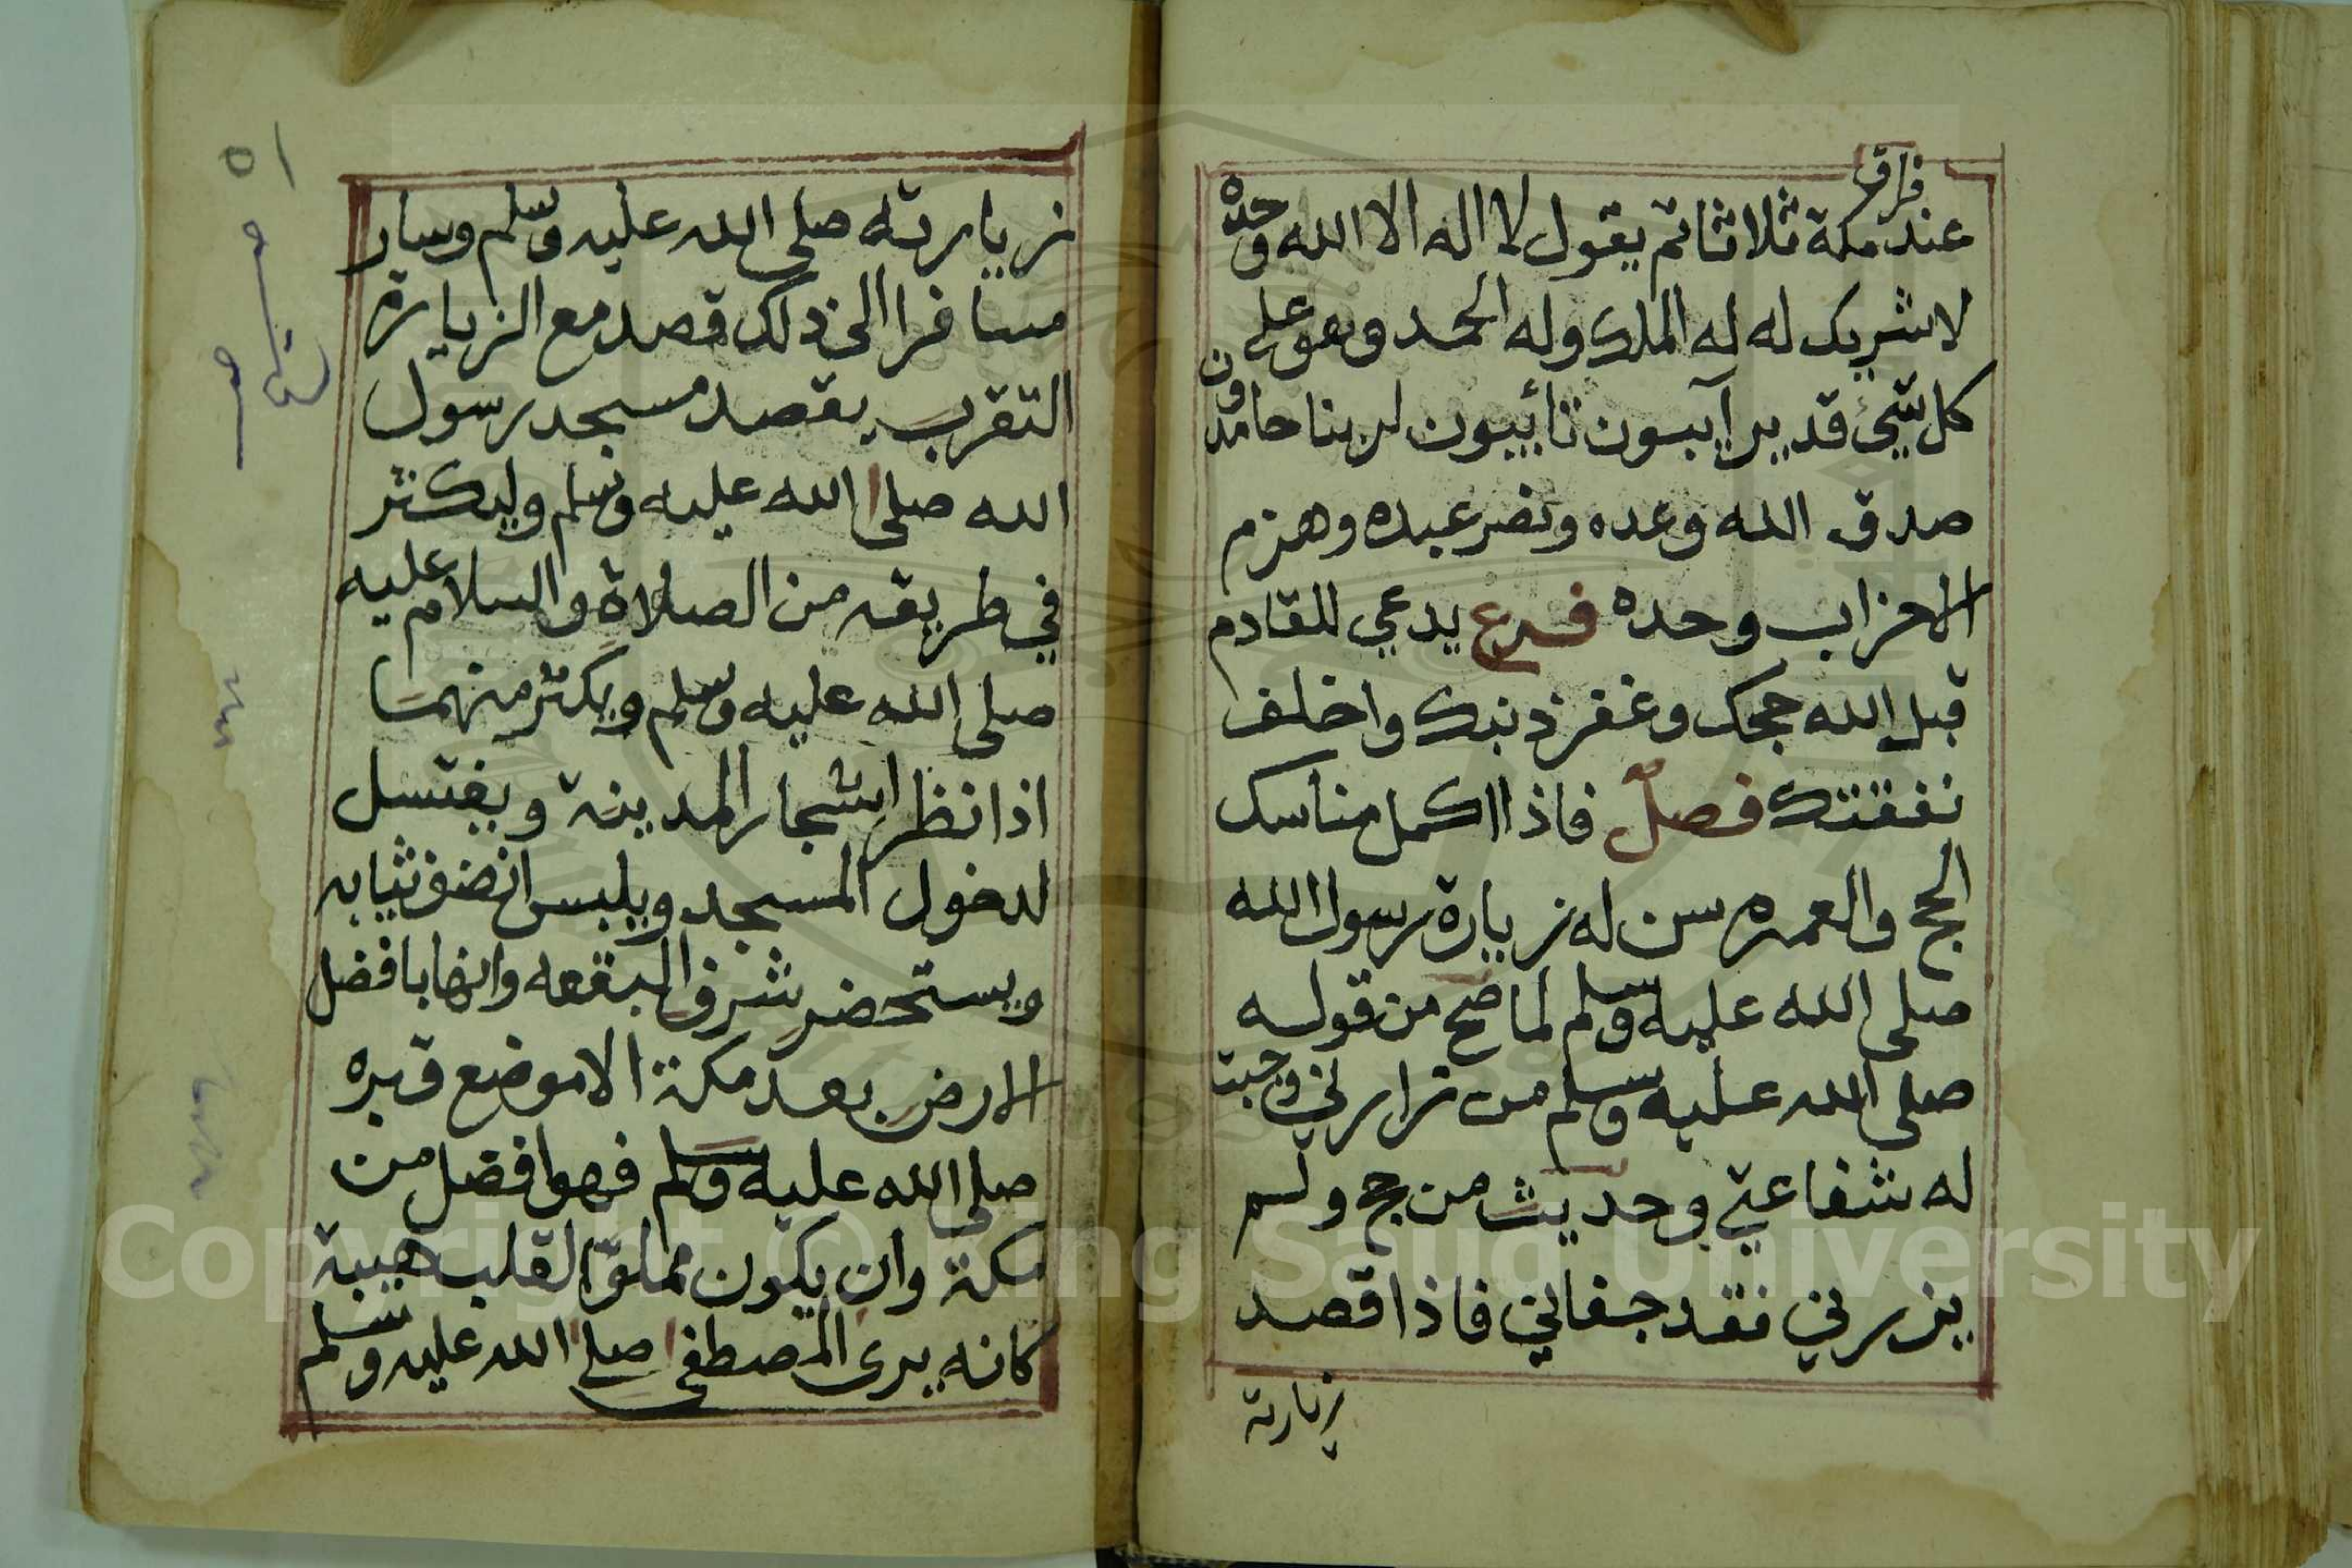 فراق
عند مكة ثلاثا ثم يقول لا اله الا الله وحده
لا شريك له له الملك وله الحمد وهو على
كل شيء قدير آيبون تائبون لربنا حامدون
صدق الله وعده ونصر عبده وهزم
الاحزاب وحده فرع يدعي للقادم
قبل الله حجك وغفر ذنبك واخلف
نفقتك فصل فاذا اكمل مناسك
الحج والعمره سن له زيارة رسول الله
صلى الله عليه وسلم لما صح من قوله
صلى الله عليه وسلم من زارني وجبت
له شفاعتي وحديث من حج ولم
يزرني فقد جفاني فاذا قصد
زيارته
٥١
زيارته صلى الله عليه وسلم وسار
مسافرا الى ذلك قصد مع الزيارة
التقرب بقصد مسجد رسول
الله صلى الله عليه وسلم وليكثر
في طريقه من الصلاة والسلام عليه
صلى الله عليه وسلم ويكثر منهما
اذا نظر اشجار المدينة ويغتسل
لدخول المسجد ويلبس انضف ثيابه
ويستحضر شرف البقعه وانها افضل
الارض بعد مكة الا موضع قبره
صلى الله عليه وسلم فهو افضل من
مكة وان يكون مملوّا القلب هيبة
كانه يرى المصطفى صلى الله عليه وسلم
Copyright © King Saud University